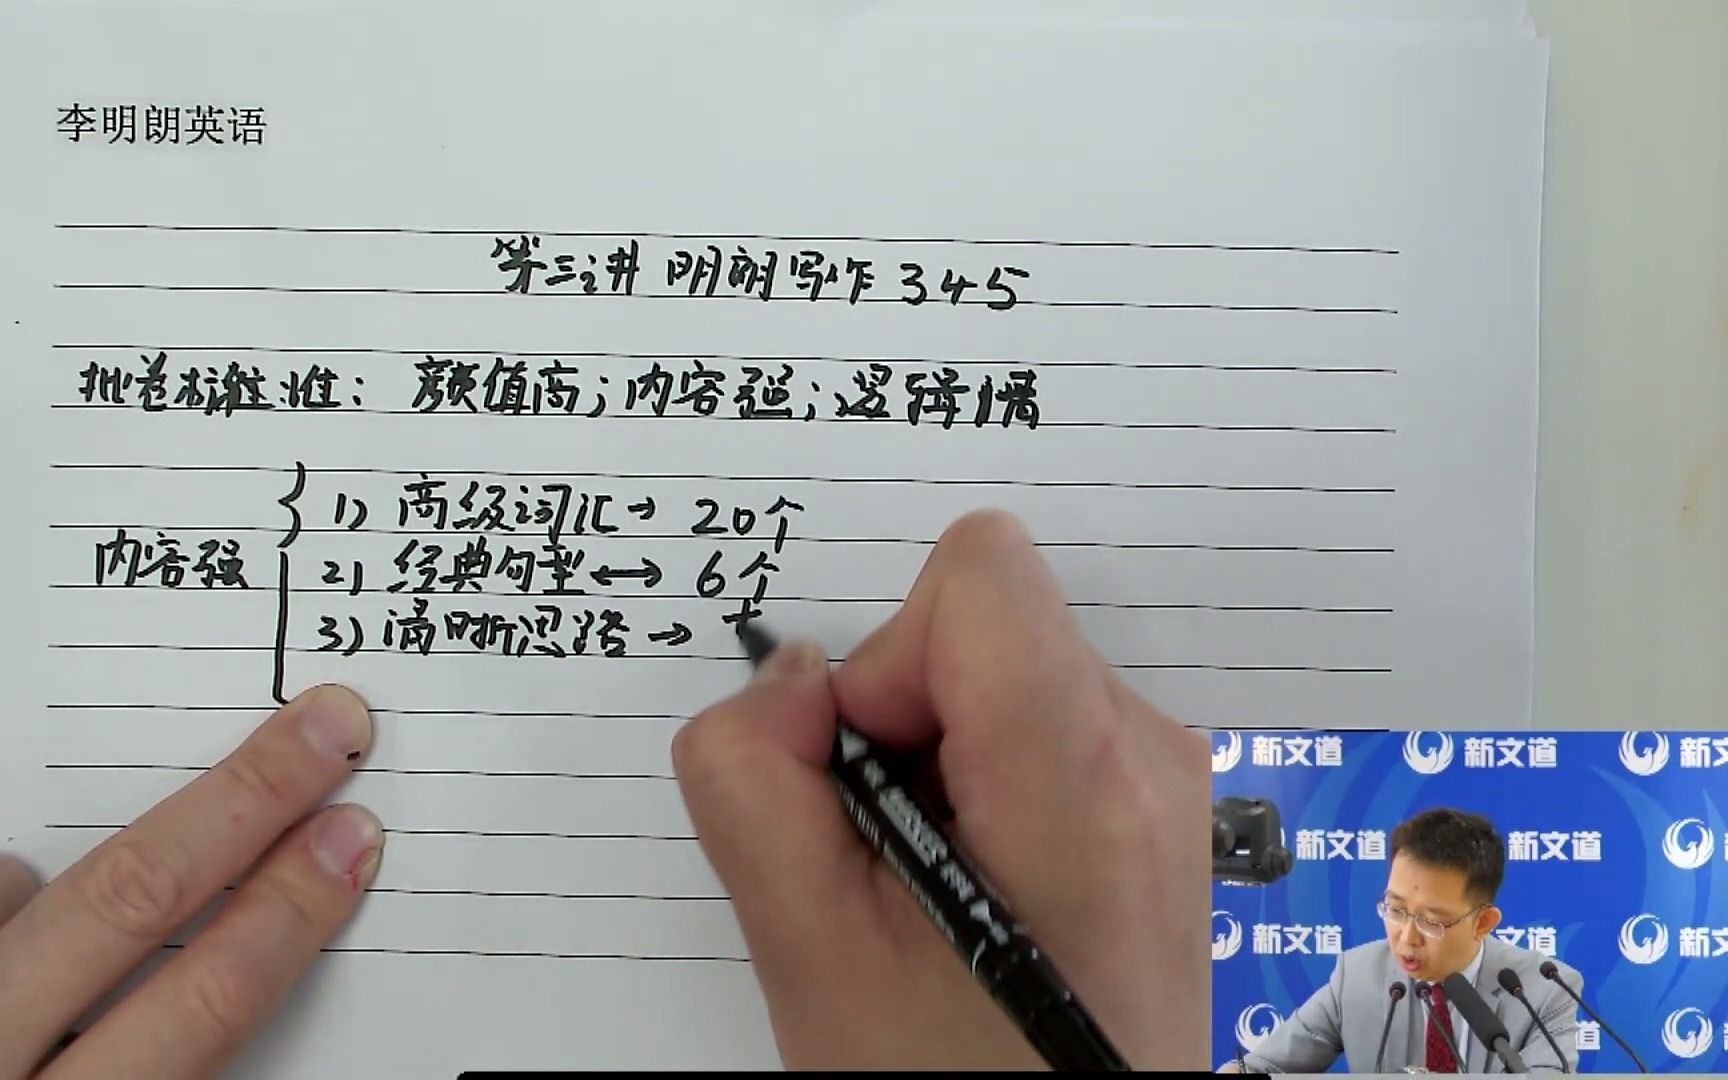 李明朗英语
第三讲 明朗写作 345
批卷标准：颜值高；内容强；逻辑清
内容强
1) 高级词汇→ 20个
2) 经典句型↔ 6个
3) 清晰思路→
新文道 新文道 新文
新文道 新文道
新文道 文道 新文
道 新